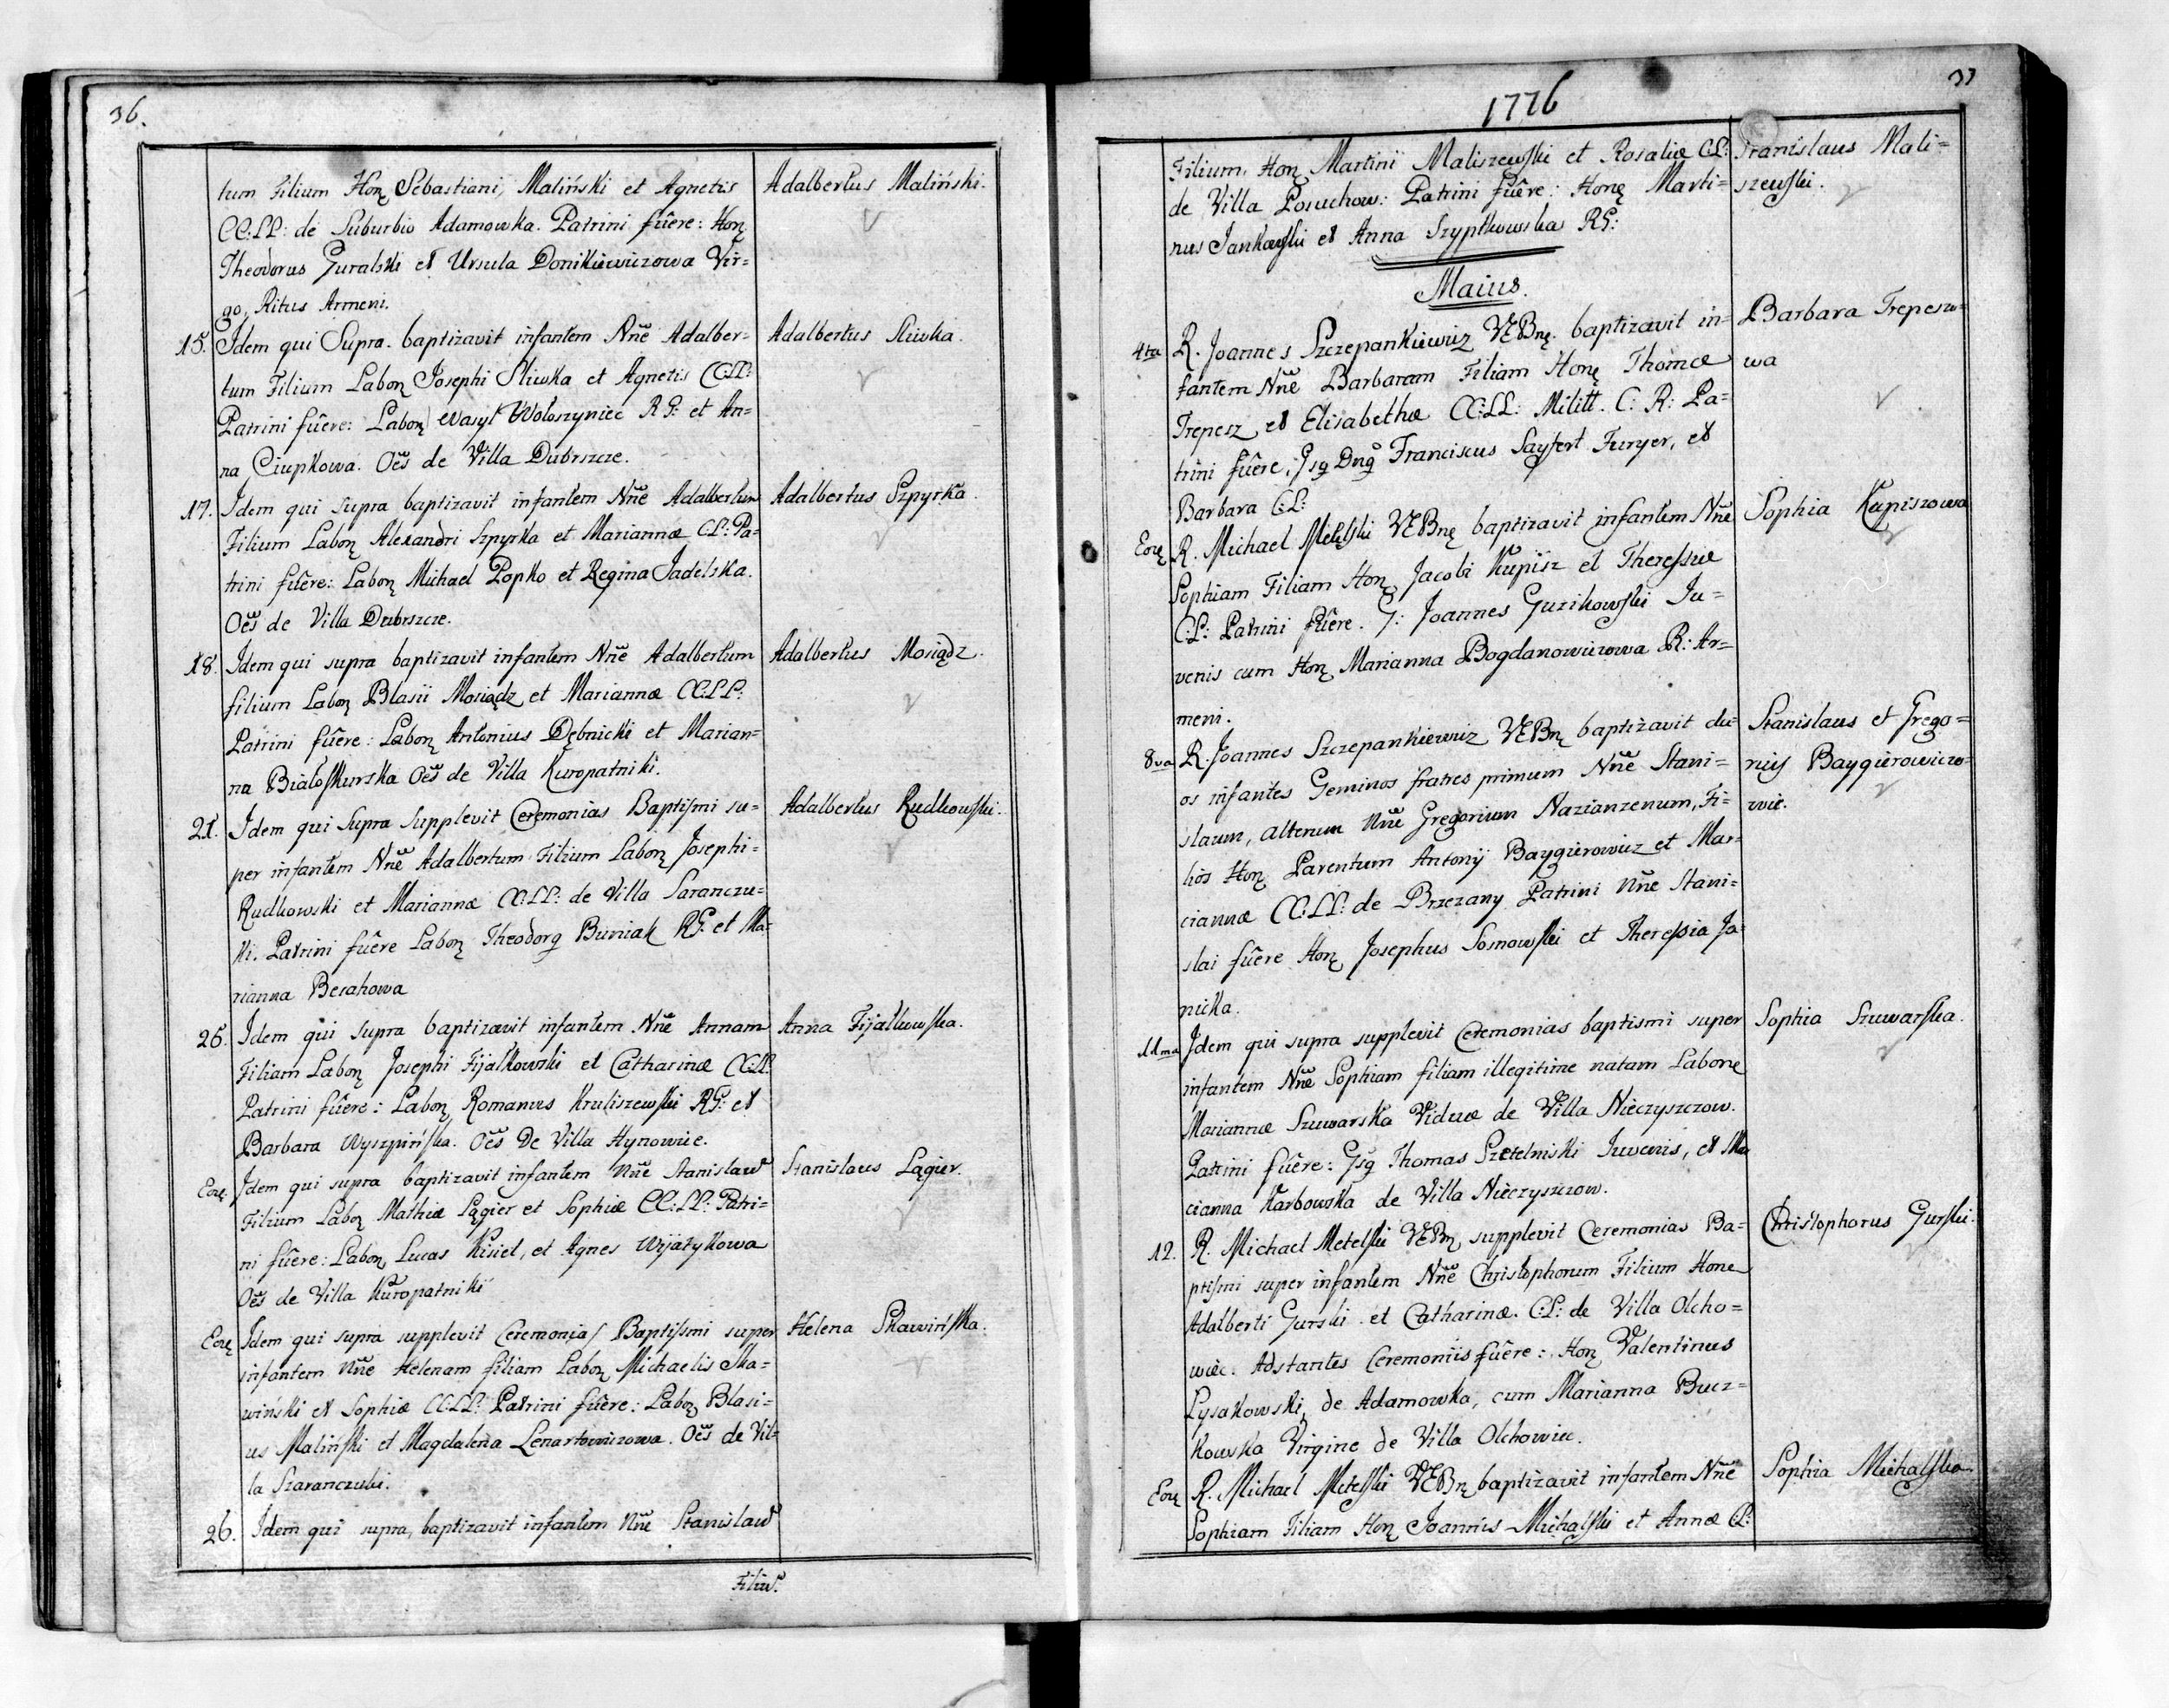 36.
tum Filium Hon Sebastiani, Maliński et Agnetis
CC:LL: de Suburbio Adamowka. Patrini fûere: Hon
Theodorus Guralski et Ursula Donikiewiczowa Vir=
go, Ritus Armeni.
Adalbertus Maliński.
15. Idem qui Supra. baptizavit infantem Nnē Adalber=
tum Filium Labor Josephi Sliwka et Agnetis CC:LL:
Patrini fûere: Labor Wasyl Wołoszyniec RG: et An=
na Ciupkowa. Oēs de Villa Dubrszcze.
Adalbertus Sliwka.
17. Idem qui supra baptizavit infantem Nnē Adalbertum
Filium Labor Alexandri Szpyrka et Mariannæ CL: Pa=
trini fûere: Labor Michael Popko et Regina Jadelska.
Oēs de Villa Dubrszcze.
Adalbertus Szpyrka.
18. Idem qui supra baptizavit infantem Nnē Adalbertum
filium Labor Blasii Mosiądz et Mariannæ CC:LL:
Patrini fûere: Labor Antonius Dębnicki et Marian=
na Białoskurska Oēs de Villa Kuropatniki.
Adalbertus Mosiądz.
21. Idem qui Supra Supplevit Ceremonias Baptismi su=
per infantem Nnē Adalbertum Filium Labor Josephi=
Rudkowski et Mariannæ CC:LL: de Villa Saranczu=
ki. Patrini fûere Labor Theodorg Buniak RG: et Ma=
rianna Besahowa
Adalbertus Rudkowski.
25. Idem qui supra baptizavit infantem Nnē Annam
Filiam Labor Josephi Fijałkowski et Catharinæ CC:LL:
Patrini fûere: Labor Romanus Kruliszewski RG: et
Barbara Wyszpińska. Oēs De Villa Hynowice.
Anna Fijałkowska.
Eorę Idem qui supra baptizavit infantem Nnē Stanislaū
Filium Labor Mathiæ Lągier et Sophiæ CC:LL: Patri=
ni fûere: Labor Lucas Kisiel, et Agnes Wijatykowa
Oēs de Villa Kuropatniki
Stanislaus Lągier.
Eorę Idem qui supra supplevit Ceremonias Baptismi super
infantem Nnē Helenam filiam Labor Michaelis Ska=
wiński et Sophiæ CC:LL: Patrini fûere: Labor Blasi=
us Maliński et Magdalena Lenartowiczowa. Oēs de Vil=
la Szaranczuki.
Helena Skawińska.
26. Idem qui supra, baptizavit infantem Nnē Stanislaū
Filiū.
1776
37
Filium Hon Martinii Maliszewski et Rosaliæ C:L:
de Villa Posuchow: Patrini fûere: Honę Marti=
nus Jankowski et Anna Szypkowska RG:
Stanislaus Mali=
szewski.
Maius.
4ta R. Joannes Szczepankiewicz VEBnę. baptizavit in=
fantem Nnē Barbaram Filiam Honę Thomæ
Trepesz et Elisabethæ CC:LL: Militt. C: R: Pa=
trini fûere: Gsg Dng Franciscus Sayfert Furyer, et
Barbara C:L:
Barbara Trepeszo=
wa
Eorę R. Michael Metelski VEBnę baptizavit infantem Nnē
Sophiam Filiam Hon Jacobi Kupisz et Theressiæ
C:L: Patrini fûere. G: Joannes Guzikowski Ju=
venis cum Hon Marianna Bogdanowiczowa R: Ar=
meni.
Sophia Kupiszowa
8va R. Joannes Szczepankiewicz VEBnę baptizavit du=
os infantes Geminos fratres primum Nnē Stani=
slaum, alterum Nnē Gregorium Nazianzenum, Fi=
lios Hon Parentum Antonij Baygierowicz et Mar=
ciannæ CC:LL: de Brzezany Patrini Nnē Stani=
slai fûere Hon Josephus Sosnowski et Theressia Ja=
nicka.
Stanislaus et Grego=
rius Baygierowiczo=
wie.
11ma Idem qui supra supplevit Ceremonias baptismi super
infantem Nnē Sophiam filiam illegitime natam Labore
Mariannæ Szuwarska Viduæ de Villa Nieczyszczow.
Patrini fûere: Gsg Thomas Szetelnicki Juvenis, et Mar
cianna Karbowska de Villa Nieczyszczow.
Sophia Szuwarska.
12. R. Michael Metelski VEBnę supplevit Ceremonias Ba=
ptismi super infantem Nnē Christophorum Filium Hone
Adalberti Gurski et Catharinæ. C:L: de Villa Olcho=
wiec. Adstantes Ceremoniis fûere: Hon Valentinus
Łysakowski de Adamowka, cum Marianna Bucz=
kowska Virgine de Villa Olchowiec.
Christophorus Gurski.
Eorę R. Michael Metelski VEBnę baptizavit infantem Nnē
Sophiam Filiam Hon Joannis Michalski et Annæ CL:
Sophia Michalska